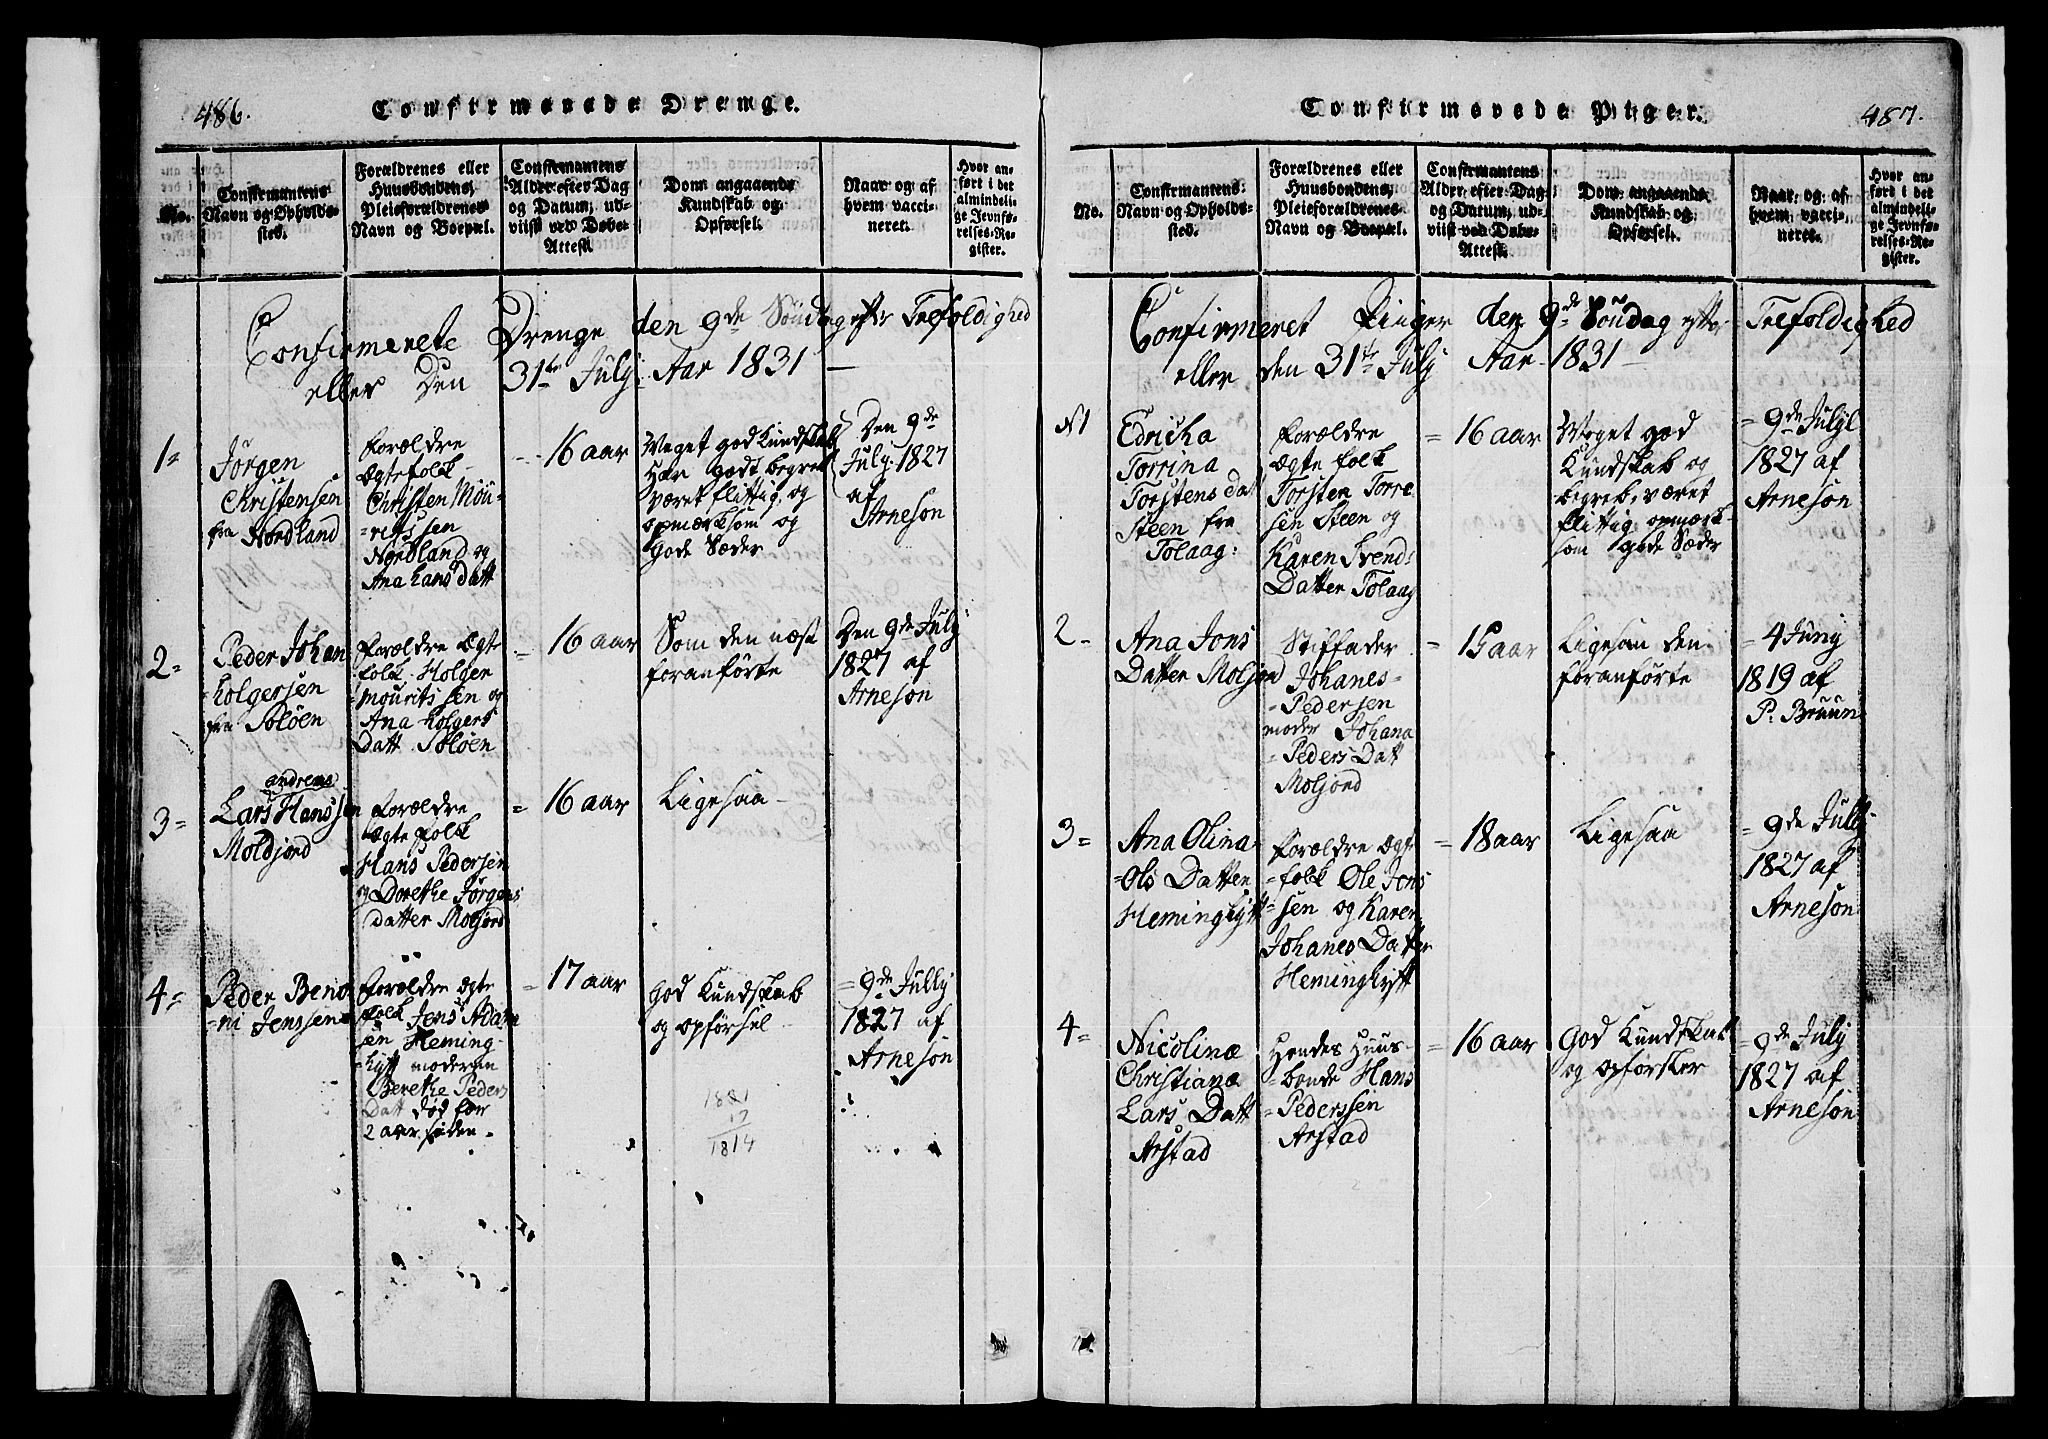 486.
Confirmerede Drenge.
No.
Confirmantens
Navn og Opholds-
sted.
Forældrenes eller
Huusbondens,
Pleieforældrenes
Navn og Boepæl.
Confirmantens
Alder efter Dag
og Datum, ud-
viist ved Døbe-
Attest.
Dom angaaende
Kundskab og
Opførsel.
Naar og af
hvem vacci-
neret.
Hvor an-
ført i det
almindeli-
ge Jevnfø-
relses-Re-
gister.
Confirmerete Drenge den 9de Söndag efter Trefoldighed
eller Den 31te July Aar 1831 —
1=
Jörgen
Christensen
fra Nordland
Forældre
Ægtefolk
Christen Möu-
=ritssen
Nordland og
Ana Hans Datt
16 aar
Meget god Kundskab
Har godt begreb
været flittig, og
opmærksom og
Gode Sæder
Den 9de
July 1827
af
Arneson
2=
Peder Johan
Holgersen
fra Soløen
Forældre Ægte
folk Holger
Mouritssen og
Ana Holgers
Datt Soløen
= 16 aar
Som den næst
foranförte
Den 9de July
1827 af
Arneson
3=
andreas
Lars Hanssen
Moldjord
Forældre
Ægte Folk
Hans Pedersen
og Dorethe Jörgens
Datter Moljord
= 16 aar
Ligesaa
4=
Peder Beno
=ni Jenssen
Forældre Ægte
folk Jens Adam
sen Heming-
hytt moderen
Berethe Peders
Datt död for
2 aar siden
= 17 aar
God Kundskab
og opförsel
1831
17
1814
=9de Jully
1827 af
Arneson
487.
Confirmerede Piger.
No.
Confirmantens
Navn og Opholds-
sted.
Forældrenes eller
Huusbondens,
Pleieforældrenes
Navn og Boepæl.
Confirmantens
Alder efter Dag
og Datum, ud-
viist ved Døbe-
Attest.
Dom angaaende
Kundskab og
Opførsel.
Naar og af
hvem vacci-
neret.
Hvor an-
ført i det
almindeli-
ge Jevnfø-
relses-Re-
gister.
Confirmeret Piger den 9de Söndag efter Trefoldighed
eller den 31te July Aar 1831
N1
Edricha
Torrina
Torstens dat
Steen fra
Tolaag:
Forældre
Ægte folk
Torsten Torre
sen Steen og
Karen Svend:
Datter Tolaag
= 16 aar
Meget god
Kundskab og
begreb, været
flittig opmærk-
som gode Sæder
= 9de July
1827 af
Arneson
2-
Ana Jons
Datter Moljord
Stiffader
Johanes=
=Pedersen
moder Johana
=Peders Datt
Moljord
= 15 aar
Ligesaa den
foranförte
= 4 Juny
1819 af
P. Bruun
3=
Ana Olina
=Ols Datter
Heminghytt
Forældre Ægte
=folk Ole Jens
=sen og Karen
Johanes Datter
Heminghytt
= 18 aar
Ligesaa
= 9de Jully
1827 af
Arneson
4=
Nicolinæ
Christianæ
Lars Datt
Arstad
Hendes Huus-
=bonde Hans
=Pederssen
Arstad
= 16 aar
God Kundskab
og opförsler
=9de July
1827 af
Arneson